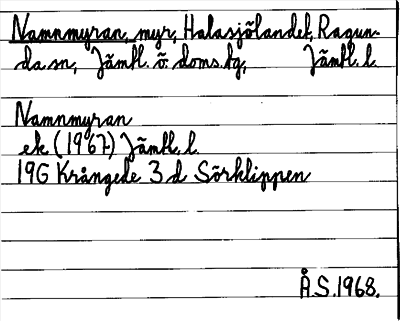 Namnmyran, myr, Halasjölandet, Ragun-
da sn, Jämtl. ö. doms.dg, Jämtl. l.
Namnmyran
ek (1967) Jämtl. l.
19G Krångede 3 d Sörklippen
Å.S. 1968.